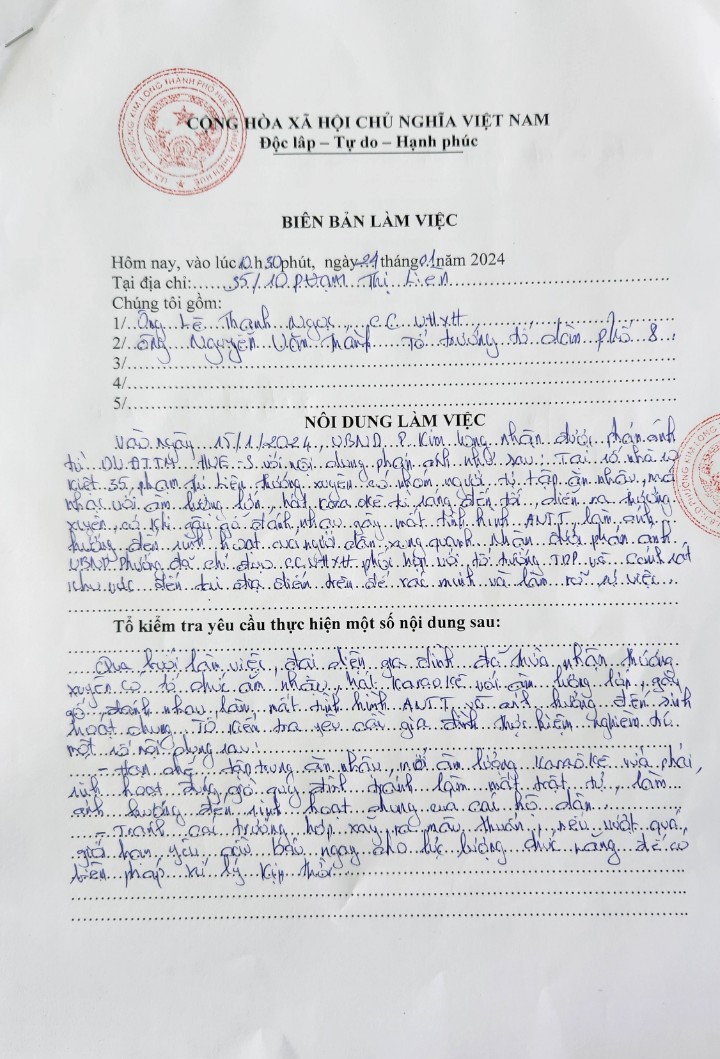 CỘNG HÒA XÃ HỘI CHỦ NGHĨA VIỆT NAM
Độc lâp – Tự do – Hạnh phúc
BIÊN BẢN LÀM VIỆC
Hôm nay, vào lúc 10 h 30 phút, ngày 21 tháng 01 năm 2024
Tại địa chỉ: 35/10 Phạm Thị Liên
Chúng tôi gồm:
1/ Ông Lê Thanh Ngọc, CC VHXH
2/ Ông Nguyễn Văn Thành Tổ trưởng tổ dân phố 8
3/
4/
5/
NÔI DUNG LÀM VIỆC
Vào ngày 15/1/2024, UBND P. Kim Long nhận được phản ánh
từ HUE-S với nội dung phản ánh như sau: Tại số nhà
kiệt 35 Phạm Thị Liên thường xuyên có nhóm người tụ tập ăn nhậu, mở
nhạc với âm lượng lớn, hát karaokê từ sáng đến tối, diễn ra thường
xuyên, có khi gây gổ đánh nhau gây mất tình hình ANTT, làm ảnh
hưởng đến sinh hoạt của người dân xung quanh. Nhận được phản ánh
UBND Phường đã chỉ đạo CC VHXH phối hợp với tổ trưởng TDP và Cảnh sát
khu vực đến tại địa điểm trên để xác minh và làm rõ sự việc
Tổ kiểm tra yêu cầu thực hiện một số nội dung sau:
Qua buổi làm việc, đại diện gia đình đã thừa nhận thường
xuyên có tổ chức ăn nhậu, hát karaokê với âm lượng lớn, gây
gổ, đánh nhau, làm mất tình hình ANTT và ảnh hưởng đến sinh
hoạt chung. Tổ kiểm tra yêu cầu gia đình thực hiện nghiêm túc
một số nội dung sau:
- Hạn chế tập trung ăn nhậu, mở âm lượng karaokê vừa phải,
sinh hoạt đúng giờ quy định tránh làm mất trật tự, làm
ảnh hưởng đến sinh hoạt chung của các hộ dân.
- Tránh các trường hợp xảy ra mâu thuẫn, nếu vượt quá
giới hạn yêu cầu báo ngay cho lực lượng chức năng để có
biện pháp xử lý kịp thời.